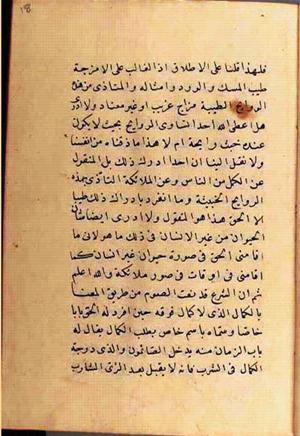 فلهذا قلنا على الاطلاق اذ الغالب على الامزجة
طيب المسك والورد وامثاله والمتاذى من هذه
الروايح الطيبة مزاج غريب او غير معتاد ولا ادرى
هل اعطى الله احدا تساوى الروايح بحيث لا يكون
عنده خبث رايحة ام لا هذا ما ذقناه من انفسنا
ولا نقل الينا ان احدا ادرك ذلك بل المنقول
عن الكمل من الناس وعن الملائكة التاذى بهذه
الروايح الخبيثة وما انفرد بادراك ذلك طيبا
الا الحق هذا هو المنقول ولا ادرى ايضا شان
الحيوان من غير الانسان فى ذلك ما هو لانى ما
اقامنى الحق فى صورة حيوان غير انسان كما
اقامنى فى اوقات فى صور ملائكة والله اعلم
ثم ان الشرع قد نعت الصوم من طريق المعنا
بالكمال الذى لا كمال فوقه حين افرد له الحق بابا
خاصا وسماه باسم خاص يطلب الكمال يقال له
باب الريان منه يدخل الصائمون والرى درجة
الكمال فى الشرب فانه لا يقبل بعد الرى الشارب